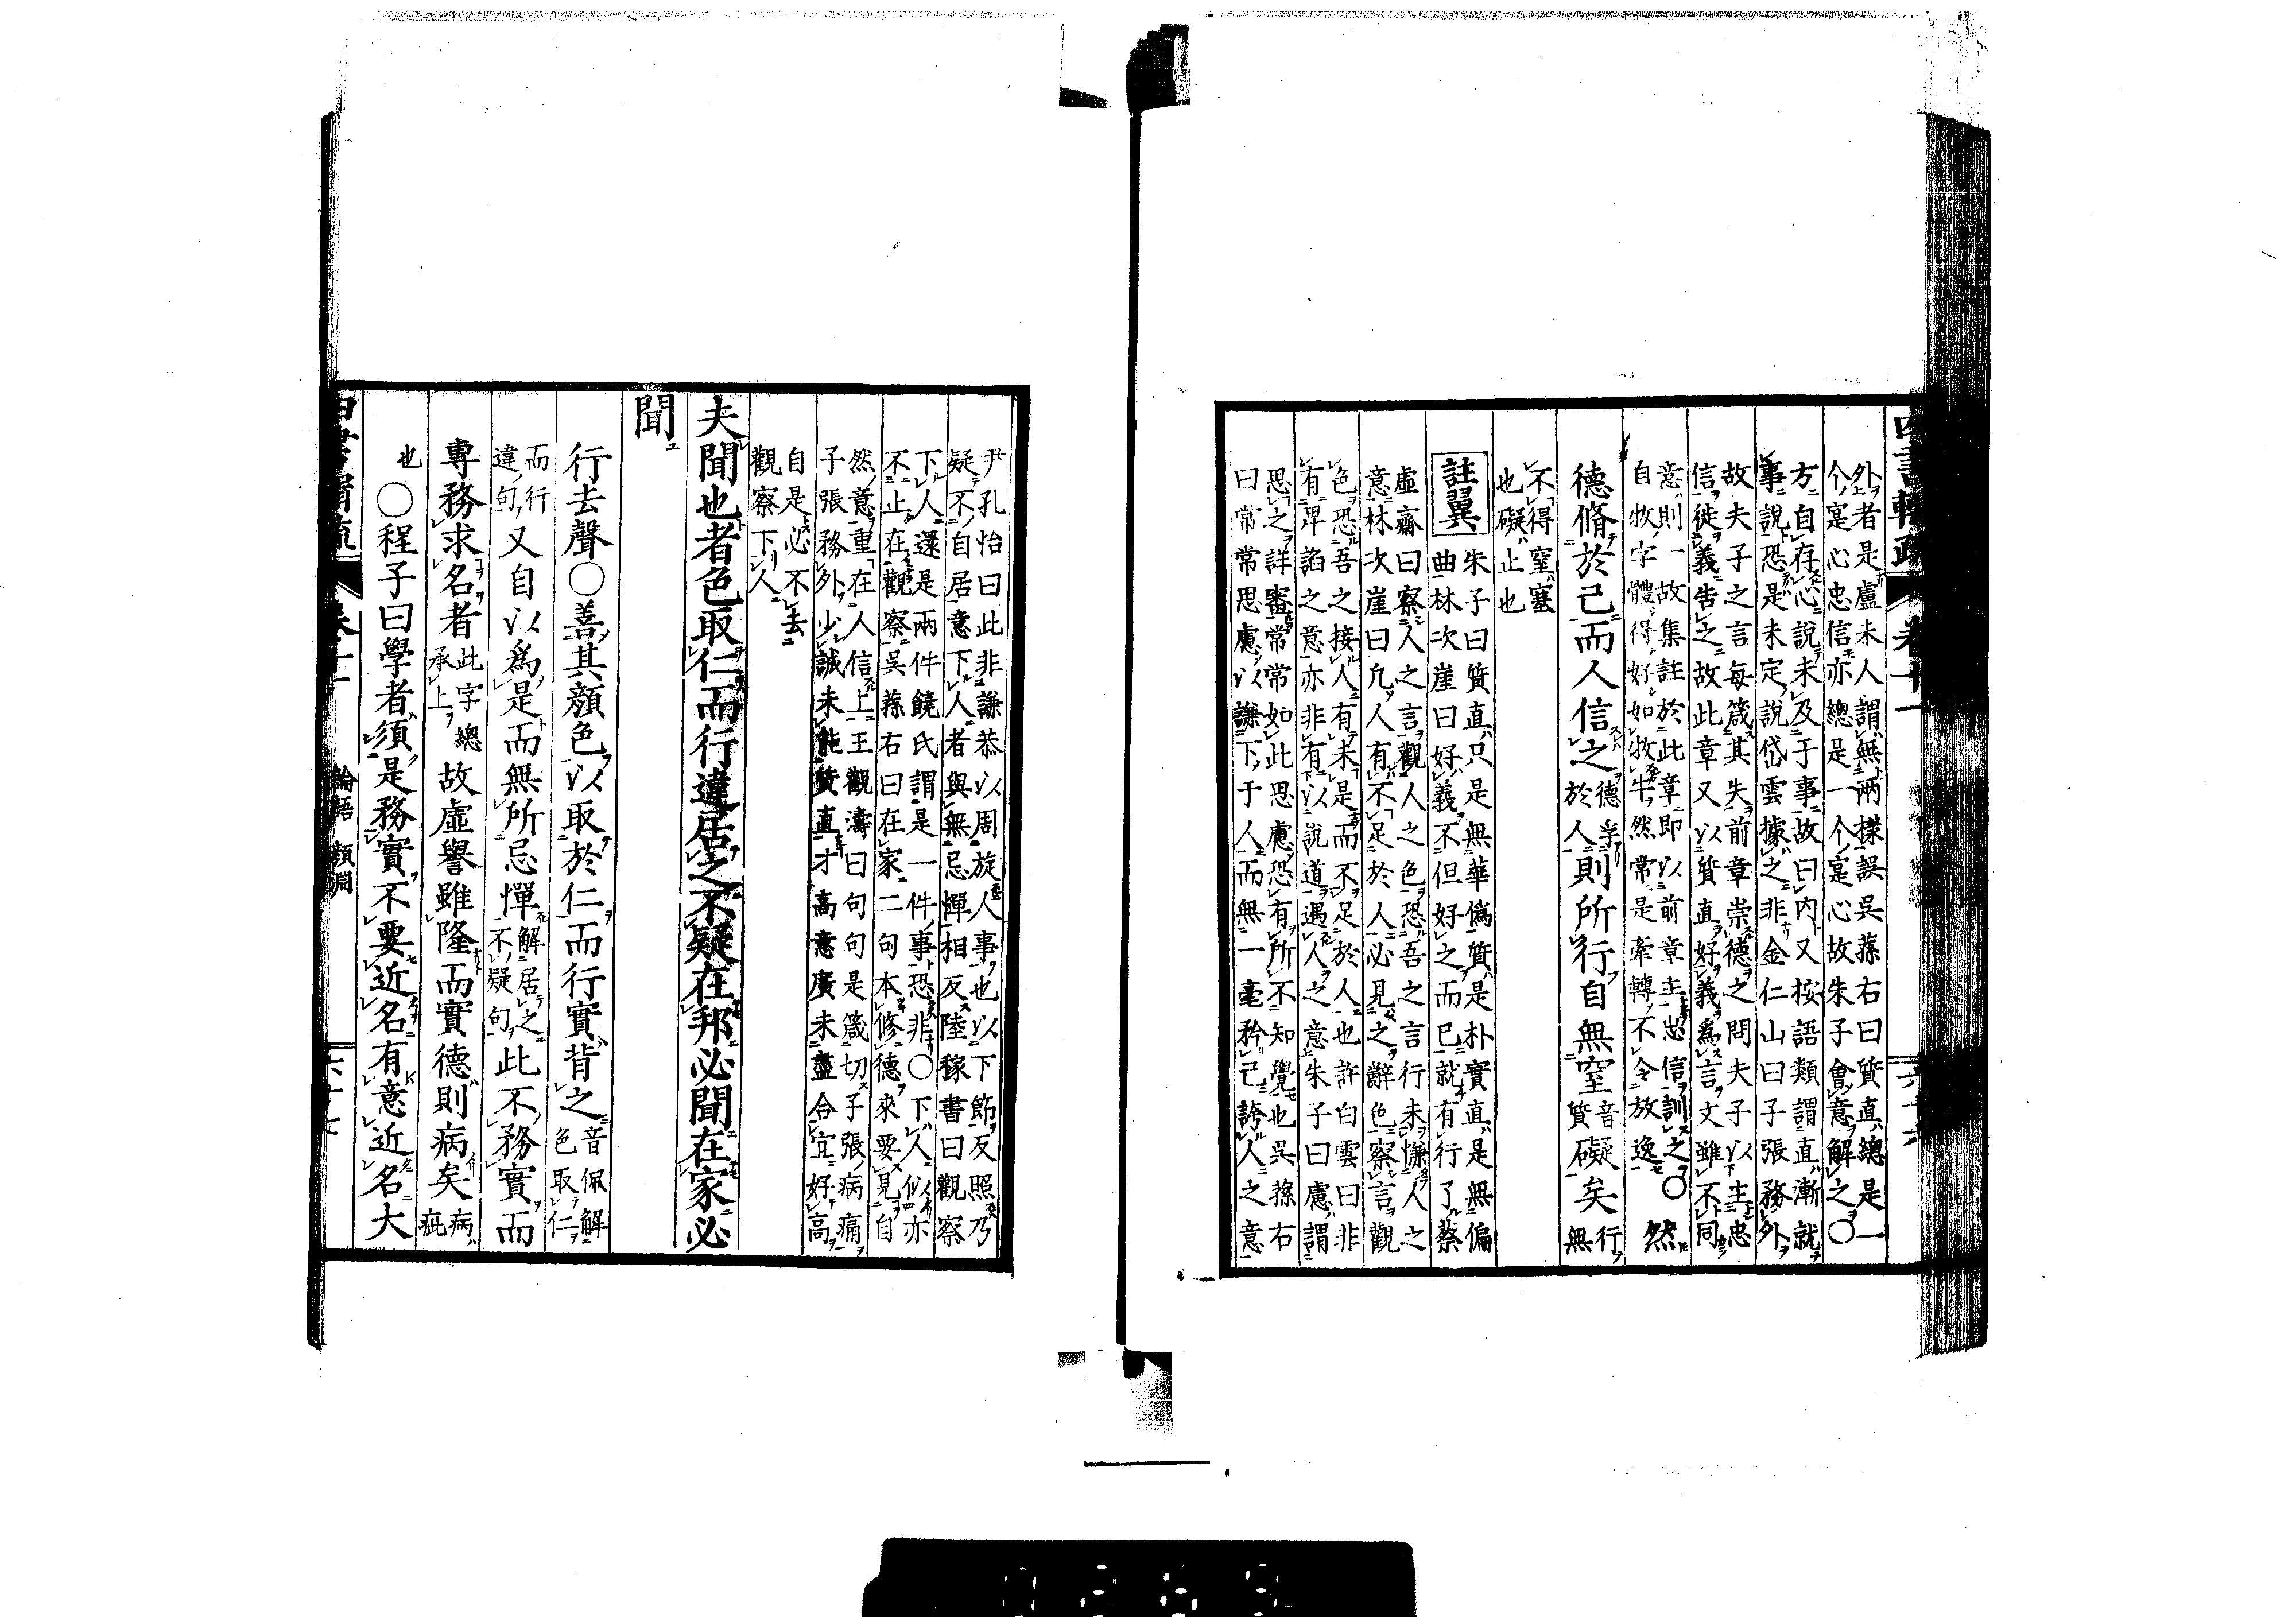 外者是盧未人謂無兩樣誤吳蓀右曰質直總是一
个寔心忠信亦總是一个寔心故朱子會意解之〇
方自存心說未及于事故曰内又按語類謂直漸就
事說恐是未定說岱雲據之非金仁山曰子張務外
故夫子之言每箴其失前章崇德之問夫子以主忠
信徙義告之故此章又以質直好義爲言文雖不同
意則一故集註於此章即以前章主忠信訓之〇然
自牧字體得好如牧牛然常是牽轉不令放逸
德脩於己而人信之
德孚
於人
則所行自無窒
音
質
礙矣
行
無
不得窒塞
也礙止也
註翼
朱子曰質直只是無華偽質是朴實直是無偏
曲林次崖曰好義不但好之而已就有行了蔡
虛齋曰察人之言觀人之色恐吾之言行未慊人之
意林次崖曰凡人有不足於人必見之辭色察言觀
色恐吾之接人有未是而不足於人也許白雲曰非
有畀諂之意亦非有以說道遇人之意朱子曰慮謂
思之詳審常常如此思慮恐有所不知覺也吳蓀右
曰常常思慮以謙下于人而無一毫矜己誇人之意
尹孔怡曰此非謙恭以周旋人事也以下節反照乃
疑不自居意下人者與無忌憚相反陸稼書曰觀察
下人還是兩件饒氏謂是一件事恐非〇下人似亦
不止在觀察吳蓀右曰在家二句本修德來要見自
然意重在人信上王觀濤曰句句是箴切子張病痛
子張務外少誠未能質直才高意廣未盡合宜好高
自是必不去
觀察下人
夫聞也者色取仁而行違居之不疑在邦必聞在家必
聞
行去聲〇善其顏色以取於仁而行實背之
音佩解
色取仁
而行
違句
又自以爲是而無所忌憚
解居之
不疑句
此不務實而
專務求名者
此字總
承上
故虛譽雖隆而實德則病矣
病
疵
也
〇程子曰學者須是務實不要近名有意近名大
四書輯疏 卷十一 論語 顏淵 六十七